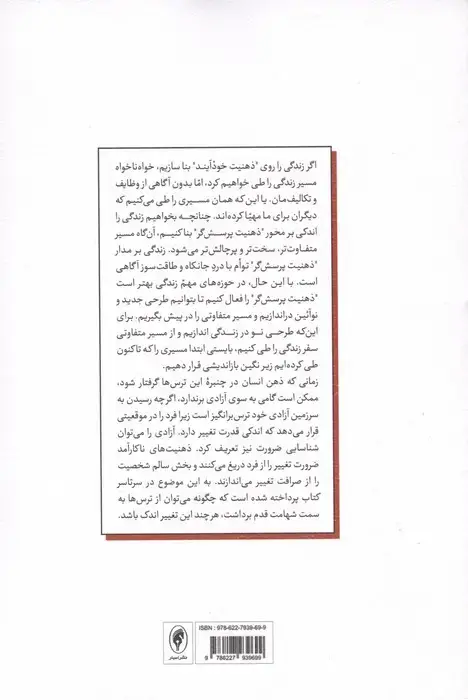 اگر زندگی را روی "ذهنیت خودآیند" بنا سازیم، خواه‌ناخواه
مسیر زندگی را طی خواهیم کرد، امّا بدون آگاهی از وظایف
و تکالیف‌مان. یا این‌که همان مسیری را طی می‌کنیم که
دیگران برای ما مهیّا کرده‌اند. چنانچه بخواهیم زندگی را
اندکی بر محور "ذهنیت پرسش‌گر" بنا کنیم، آن‌گاه مسیر
متفاوت‌تر، سخت‌تر و پرچالش‌تر می‌شود. زندگی بر مدار
"ذهنیت پرسش‌گر" توأم با دردِ جانکاه و طاقت‌سوز آگاهی
است. با این حال، در حوزه‌های مهمّ زندگی بهتر است
"ذهنیت پرسش‌گر" را فعال کنیم تا بتوانیم طرحی جدید و
نوآئین دراندازیم و مسیر متفاوتی را در پیش بگیریم. برای
این‌که طرحی نو در زندگی اندازیم و از مسیر متفاوتی
سفر زندگی را طی کنیم، بایستی ابتدا مسیری را که تاکنون
طی کرده‌ایم زیر نگین بازاندیشی قرار دهیم.
زمانی که ذهن انسان در چنبرهٔ این ترس‌ها گرفتار شود،
ممکن است گامی به سوی آزادی برندارد، اگرچه رسیدن به
سرزمین آزادی خود ترس‌برانگیز است زیرا فرد را در موقعیتی
قرار می‌دهد که اندکی قدرت تغییر دارد. آزادی را می‌توان
شناسایی ضرورت نیز تعریف کرد. ذهنیت‌های ناکارآمد
ضرورت تغییر را از فرد دریغ می‌کنند و بخش سالم شخصیت
را از صرافت تغییر می‌اندازند. به این موضوع در سرتاسر
کتاب پرداخته شده است که چگونه می‌توان از ترس‌ها به
سمت شهامت قدم برداشت، هرچند این تغییر اندک باشد.
ISBN : 978-622-7939-69-9
9 786227 939699
نشر اسبار